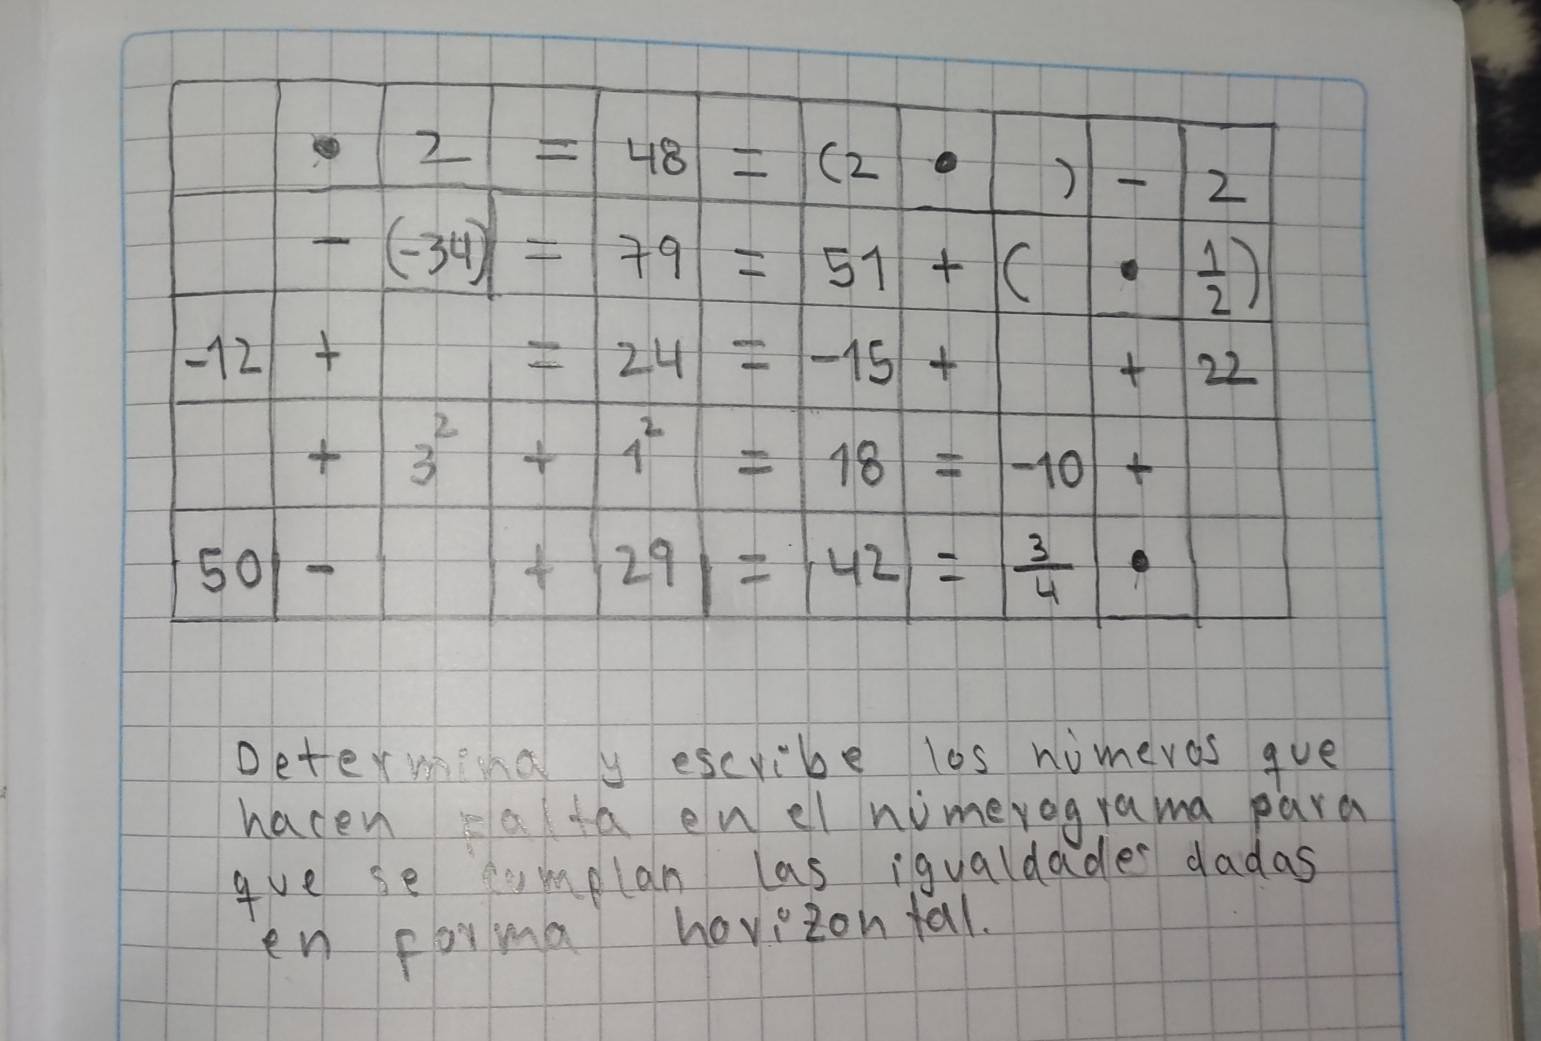 • 2 = 48 = (2 • ) - 2
- (-34) = 79 = 51 + ( • 1/2)
-12 + = 24 = -15 + + 22
+ 3² + 1² = 18 = -10 +
50 - + 29 = 42 = 3/4 •
Determina y escribe los números que
hacen falta en el númerograma para
que se cumplan las igualdades dadas
en forma horizontal.